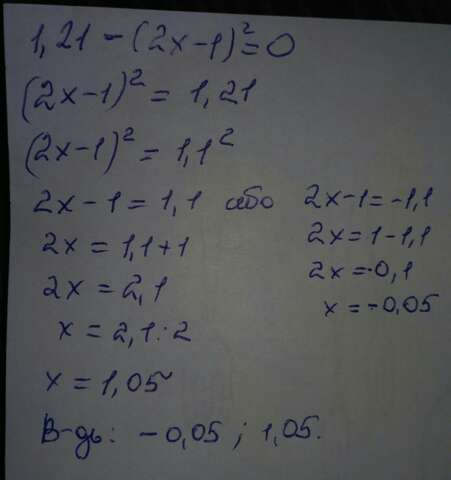 1,21 - (2x-1)² = 0
(2x-1)² = 1,21
(2x-1)² = 1,1²
2x - 1 = 1,1 або 2x-1 = -1,1
2x = 1,1+1 2x = 1-1,1
2x = 2,1 2x = -0,1
x = 2,1:2 x = -0,05
x = 1,05
В-дь: -0,05 ; 1,05.